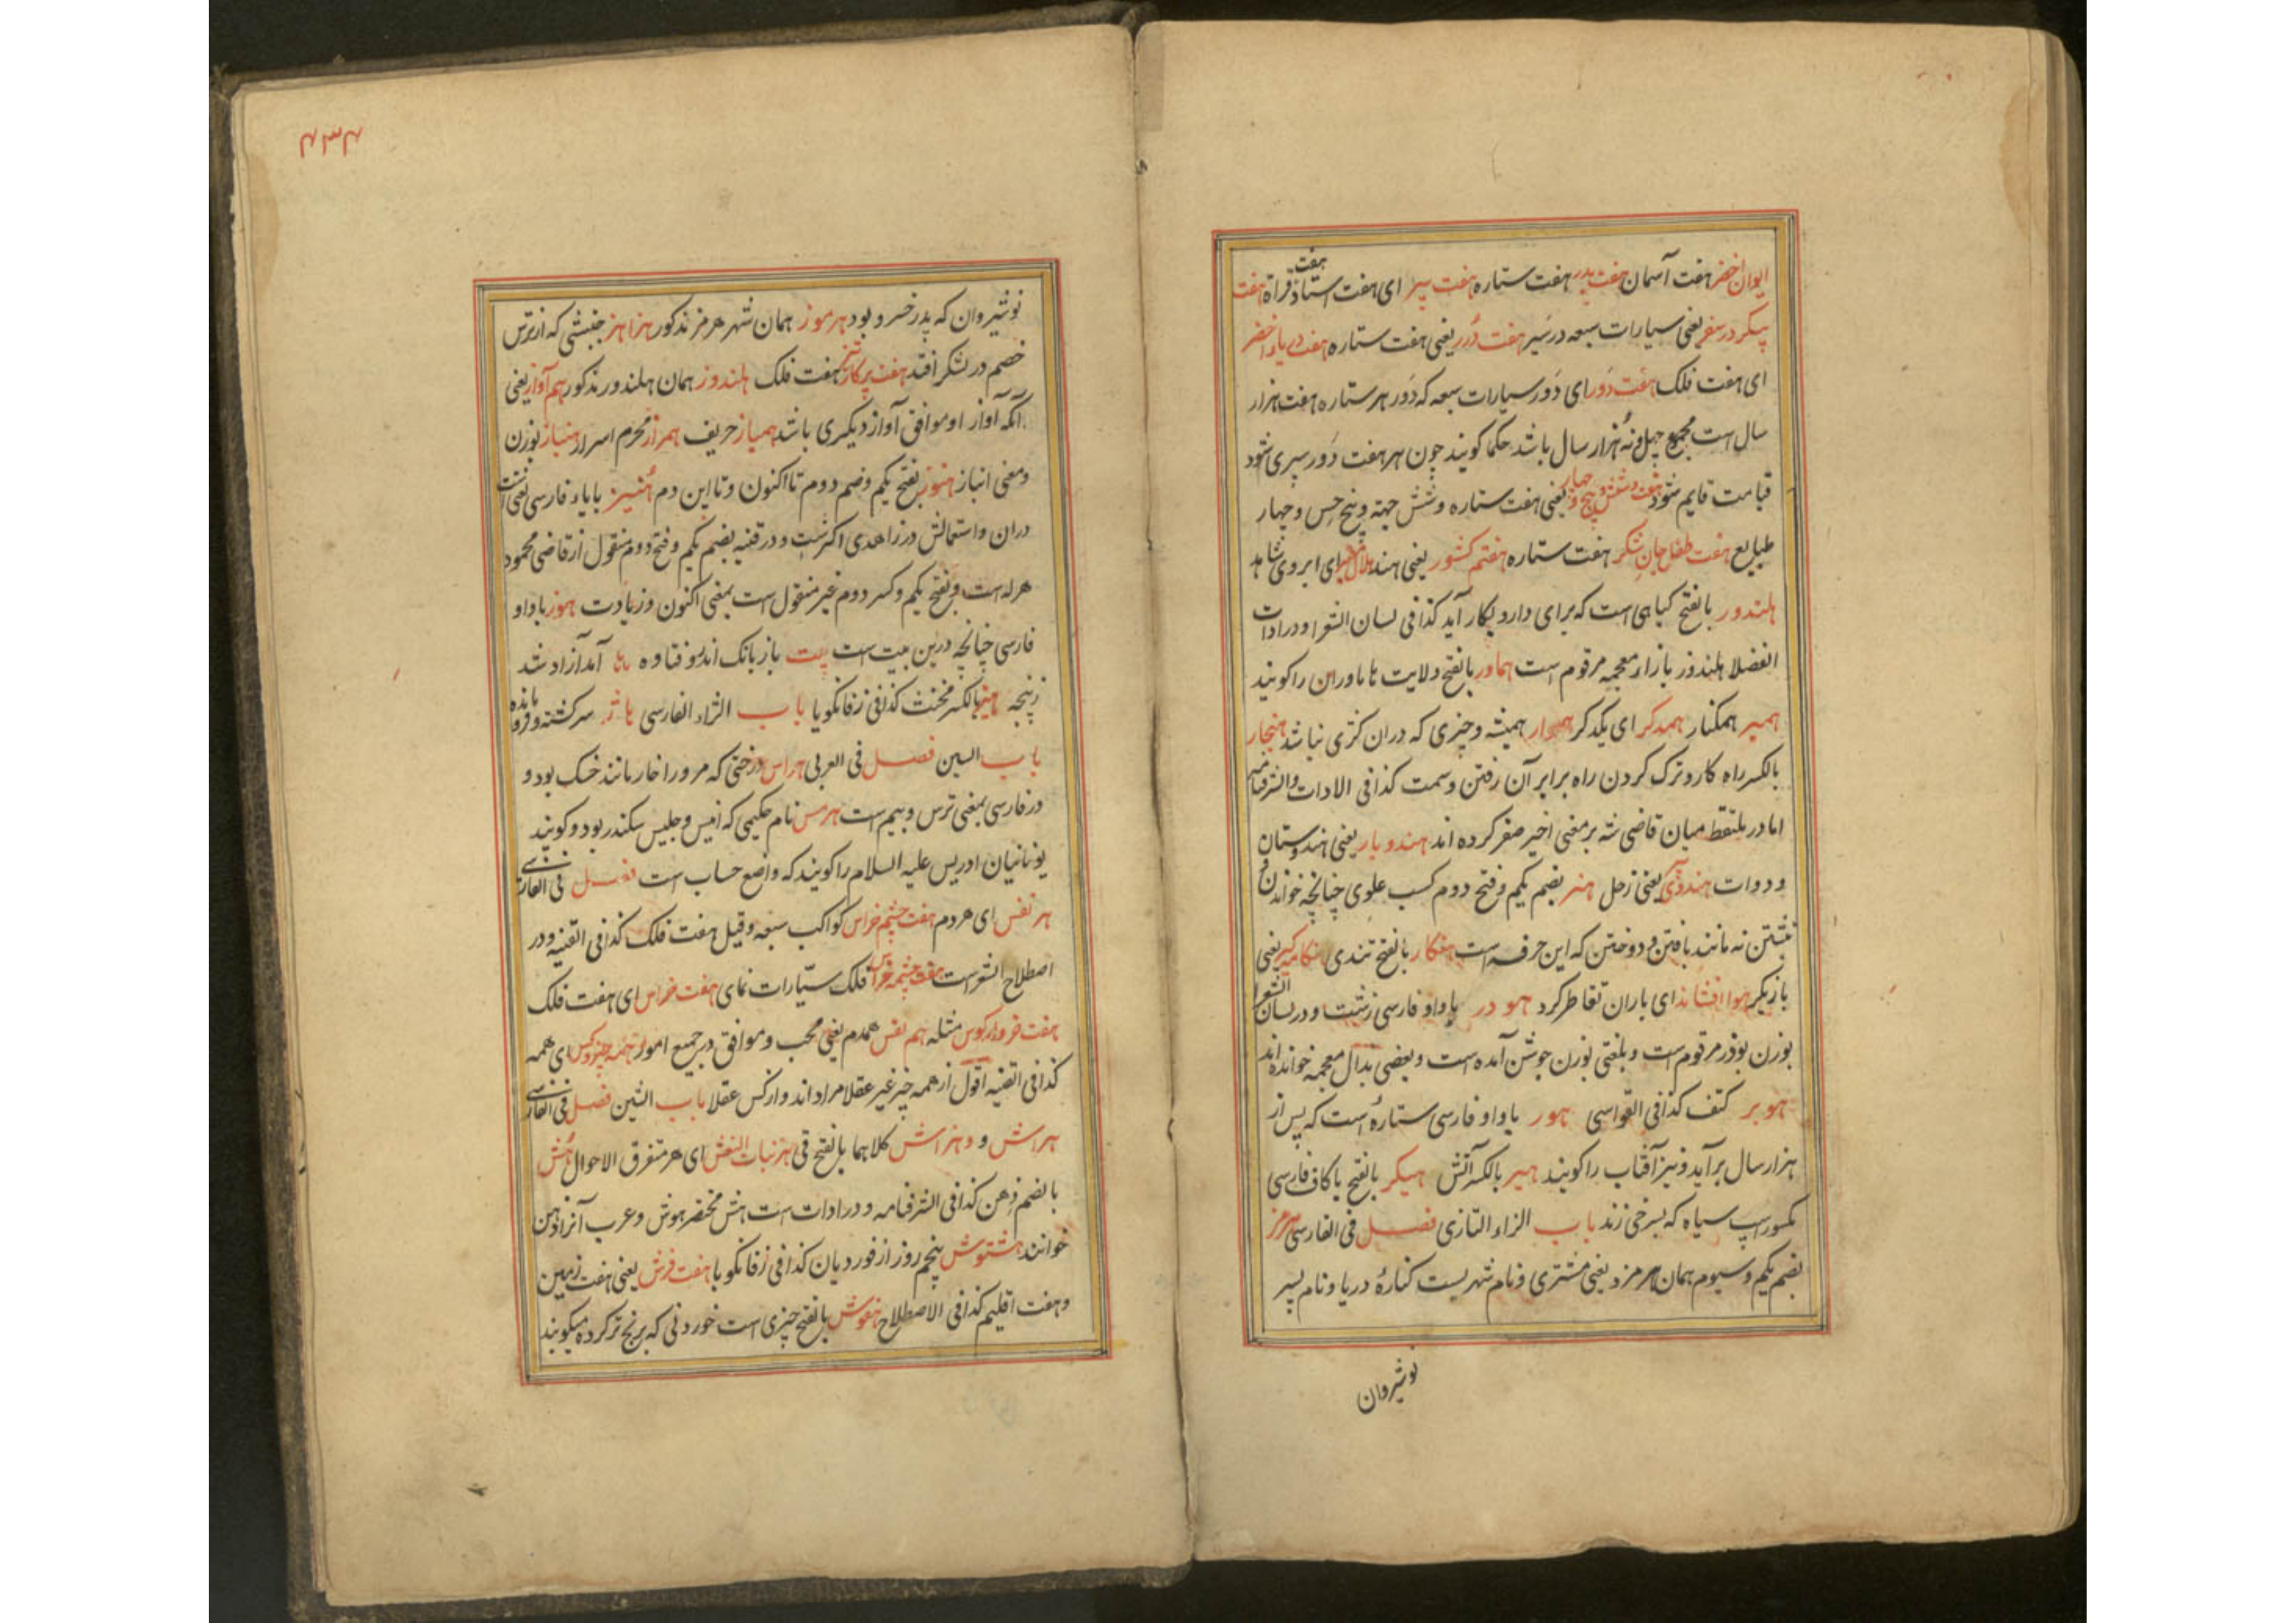 ایوان اخضر هفت آسمان هفت پدر هفت ستاره هفت پیر ای هفت استاد قراة هفت
هفت
پیکر در سفر یعنی سیارات سبعه در سیر هفت دُرر یعنی هفت ستاره هفت دریاء اخضر
ای هفت فلک هفت دَور ای دَور سیارات سبعه که دَور هر ستاره هفت هزار
سال است مجموع چهل و نُه هزار سال باشد حکما کویند چون هر هفت دَور سپری شود
قیامت قایم شود هفت و شش و پنج و چهار یعنی هفت ستاره و شش جهته و پنج حس و چهار
طبایع هفت طفل جان شکر هفت ستاره هفتم کشور یعنی هند هلال ای ابروی شاهد
هلندور بالفتح کیاهی است که برای دارو بکار آید کذا فی لسان الشعرا و در ادات
الفضلا هلندوز بازاء معجمه مرقوم است هماور بالفتح ولایت هاماوران را کویند
همبر همکنار همدکر ای یکدکر هموار همیشه و چیزی که دران کژی نباشد هنجار
بالکسر راه کار و ترک کردن راه برابر آن رفتن و سمت کذا فی الادات والشرفنامه
اما در ملتقط میان قاضی شه بر معنی اخیر صفر کرده اند هندو بار یعنی هندوستان
و دوات هندوی یعنی زحل هنر بضم یکم و فتح دوم کسب علوی چنانچه خواندن و
نبشتن نه مانند بافتن و دوختن که این حرفه است هنکار بالفتح تندی هنکامه کیر یعنی
بازیکر هوا افشاند ای باران تقاطر کرد هودر با واو فارسی زشت و در لسان الشعرا
بوزن بوذر مرقوم است و بلغتی بوزن جوشن آمده است و بعضی بدال معجمه خوانده اند
هوبر کتف کذا فی القواسی هور با واو فارسی ستارهٔ است که پس از
هزار سال برآید و نیز آفتاب را کویند هیر بالکسر آتش هیکر بالفتح با کاف فارسی
مکسور اسپ سیاه که بسرخی زند باب الزاء التازی فصل فی الفارسی هرمز
بضم یکم و سیوم همان هرمزد یعنی مشتری و نام شهریست کنارهٔ دریا و نام پسر
نوشیروان
۴۳۴
نوشیروان که پدر خسرو بود هرموز همان شهر هرمز مذکور هزاهز جنبشی که از ترس
خصم در لشکر افتد هفت پرکار هفت فلک هلندوز همان هلندور مذکور هم آواز یعنی
آنکه آواز او موافق آواز دیکری باشد همباز حریف همراز محرم اسرار هنباز بوزن
و معنی انباز هنوز بفتح یکم و ضم دوم تا اکنون و تا این دم هُنیز بایاء فارسی
دران و استمالش در زاهدی اکثرست و در قنیه بضم یکم و فتح دوم منقول از قاضی محمود
هرله است و بفتح یکم و کسر دوم غیر منقول است بمعنی اکنون و زیادت هوز با واو
فارسی چنانچه درین بیت است بیت باز بانک اندر فتاوه ها آمد آزاد شد
زپنجه هیز بالکسر مخنث کذا فی زفانکویا باب الژاء الفارسی هاژ سرکشته و فرومانده
باب السین فصل فی العربی هراس درختی که مرورا خار مانند خسک بود و
در فارسی بمعنی ترس و بیم است هرمس نام حکیمی که انیس و جلیس سکندر بود و کویند
یونانیان ادریس علیه السلام را کویند که واضع حساب است فصل فی الفارسی
هر نفس ای هر دم هفت چشم خراس کواکب سبعه و قیل هفت فلک کذا فی القنیه و در
اصطلاح الشعراست هفت چشمه خراس فلک سیّارات نمای هفت خراس ای هفت فلک
هفت خروار کوس مثله هم نفس همدم یعنی محب و موافق در جمیع امور همه چیز و کس ای همه
کذا فی القنیه اقول از همه چیز غیر عقلا مراد اند و از کس عقلا باب الشین فصل فی الفارسی
هراش و هزاش کلاهما بالفتح قی هر بنات النعش ای هر متفرق الاحوال هُش
بالضم ذهن کذا فی الشرفنامه و در ادات است هش مختصر هوش و عرب آنرا ذهن
خوانند هشتوش پنجم روز از فوردیان کذا فی زفانکویا هفت فرش یعنی هفت زمین
و هفت اقلیم کذا فی الاصطلاح هنوش بالفتح چیزی است خوردنی که برنج تر کرده میکوبند